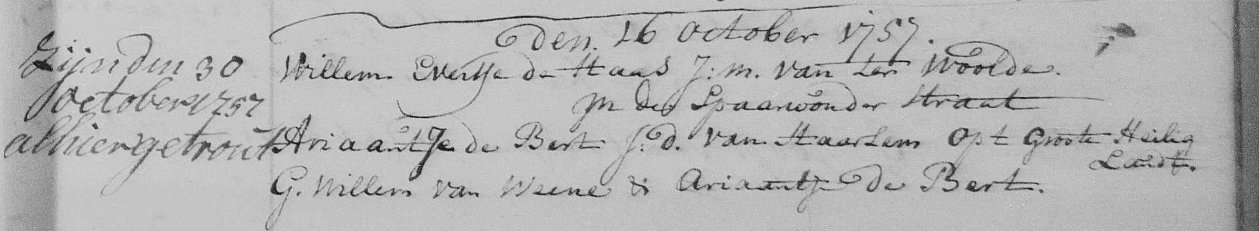 den. 16 october 1757.
Zijn den 30
october 1757
alhier getrout
Willem Evertse de Haas J: m. van ter Woolde.
in de Spaarwouder Straat
Ariaantje de Bert J: d. van Haarlem op t Groote Heilig
Landt.
G. Willem van Weene & Ariaantje de Bert.